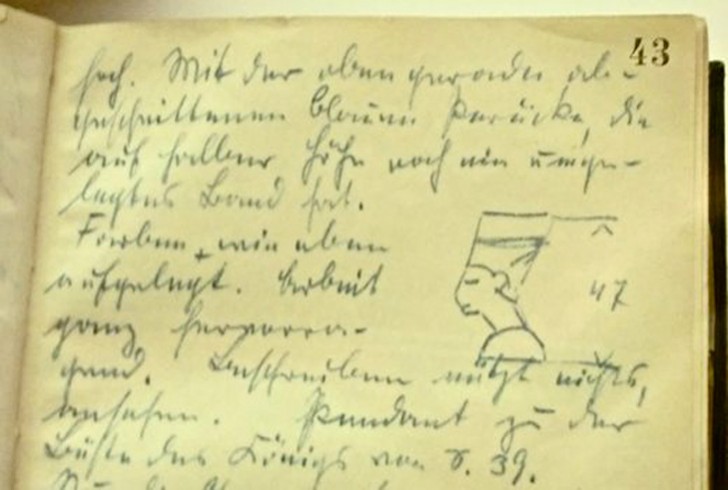 43
hoch. Mit der oben gerade ab-
geschnittenen blauen Perücke, die
auf halber Höhe noch ein umge-
legtes Band hat.
Farben wie eben
aufgelegt. Arbeit
47
ganz hervorra-
gend. Beschreiben nützt nichts,
ansehen. Pendant zu der
Büste des Königs von S. 39.